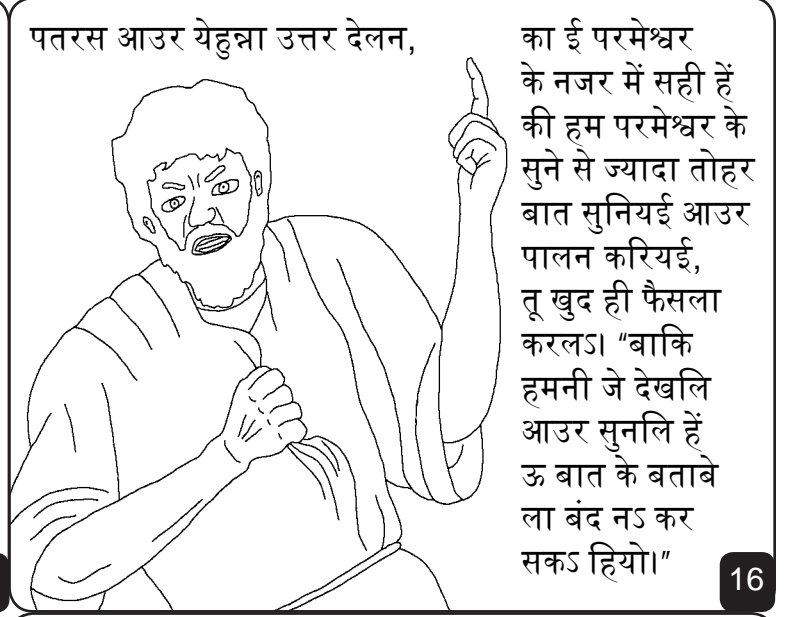 पतरस आउर येहुन्ना उत्तर देलन,
का ई परमेश्वर
के नजर में सही हें
की हम परमेश्वर के
सुने से ज्यादा तोहर
बात सुनियई आउर
पालन करियई,
तू खुद ही फैसला
करलऽ। “बाकि
हमनी जे देखलि
आउर सुनलि हें
ऊ बात के बताबे
ला बंद नऽ कर
सकऽ हियो।”
16